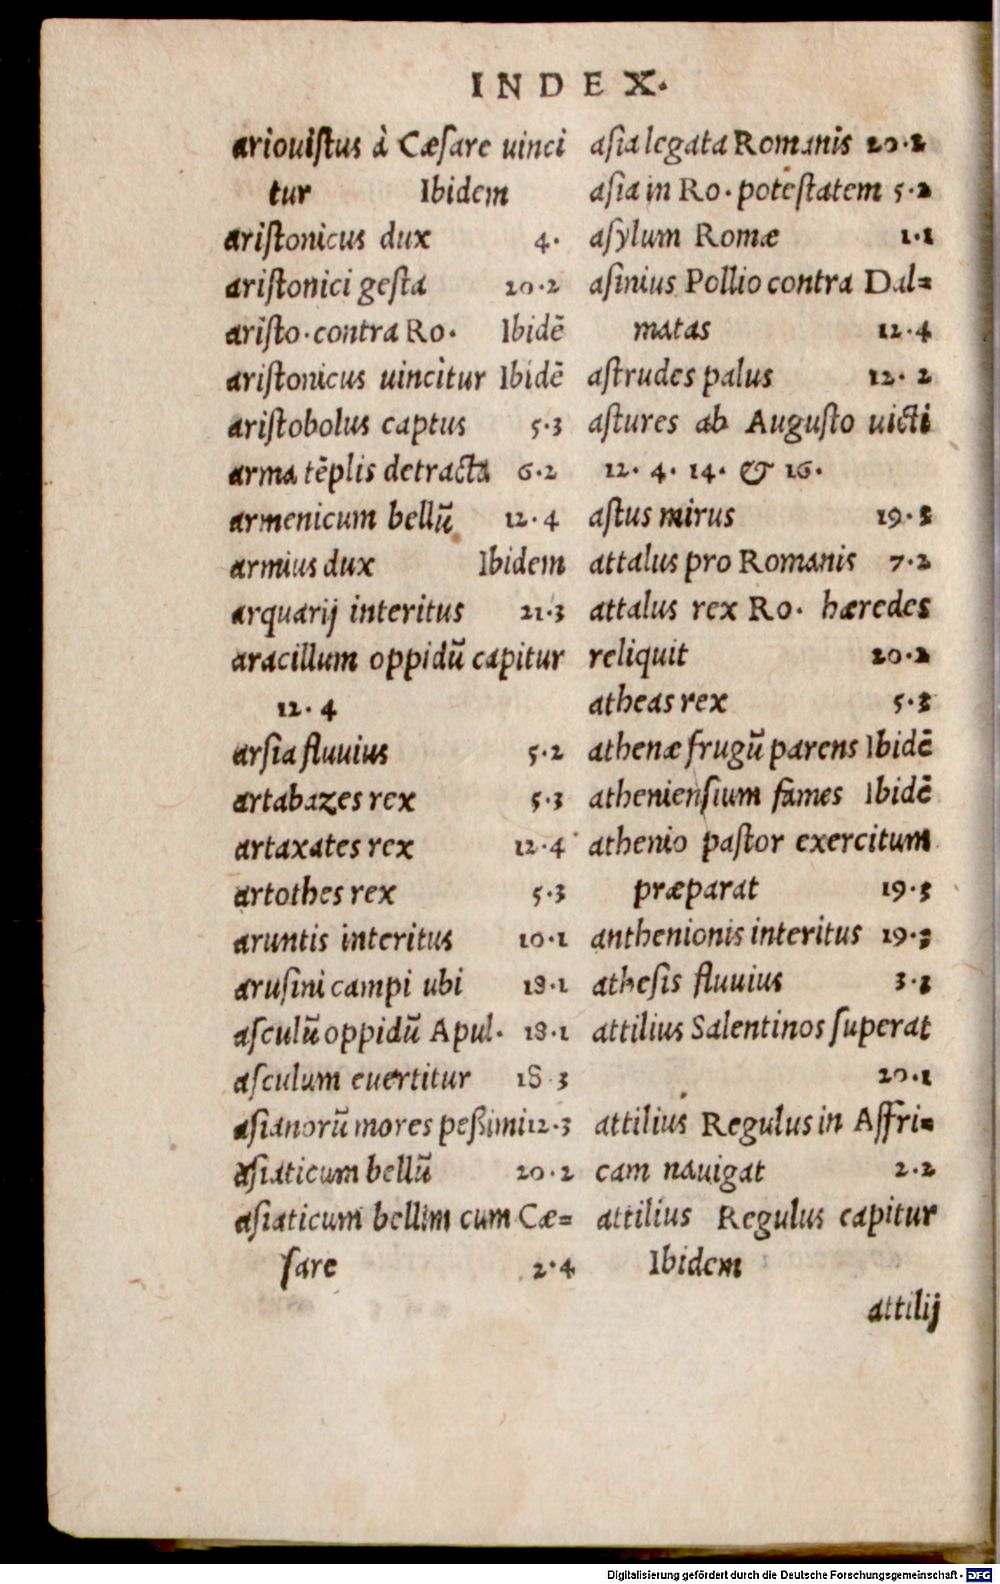 INDEX.
ariouiſtus à Cæſare uinci
tur Ibidem
ariſtonicus dux 4.
ariſtonici geſta 20.2
ariſto.contra Ro. Ibidē
ariſtonicus uincitur Ibidē
ariſtobolus captus 5.3
arma tēplis detracta 6.2
armenicum bellū 12.4
armius dux Ibidem
arquarij interitus 21.3
aracillum oppidū capitur
12.4
arſia fluuius 5.2
artabazes rex 5.3
artaxates rex 12.4
artothes rex 5.3
aruntis interitus 10.1
aruſini campi ubi 18.1
aſculū oppidū Apul. 18.1
aſculum euertitur 18 3
aſianorū mores peßimi 12.3
aſiaticum bellū 20.2
aſiaticum bellum cum Cæ=
ſare 2.4
aſia legata Romanis 20.2
aſia in Ro.poteſtatem 5.2
aſylum Romæ 1.1
aſinius Pollio contra Dal=
matas 12.4
aſtrudes palus 12.2
aſtures ab Auguſto uicti
12. 4. 14. & 16.
aſtus mirus 19.3
attalus pro Romanis 7.2
attalus rex Ro. hæredes
reliquit 20.2
atheas rex 5.3
athenæ frugū parens Ibidē
athenienſium fames Ibidē
athenio paſtor exercitum
præparat 19.3
anthenionis interitus 19.3
atheſis fluuius 3.3
attilius Salentinos ſuperat
20.1
attilius Regulus in Affri=
cam nauigat 2.2
attilius Regulus capitur
Ibidem
attilij
Digitalisierung gefördert durch die Deutsche Forschungsgemeinschaft - DFG